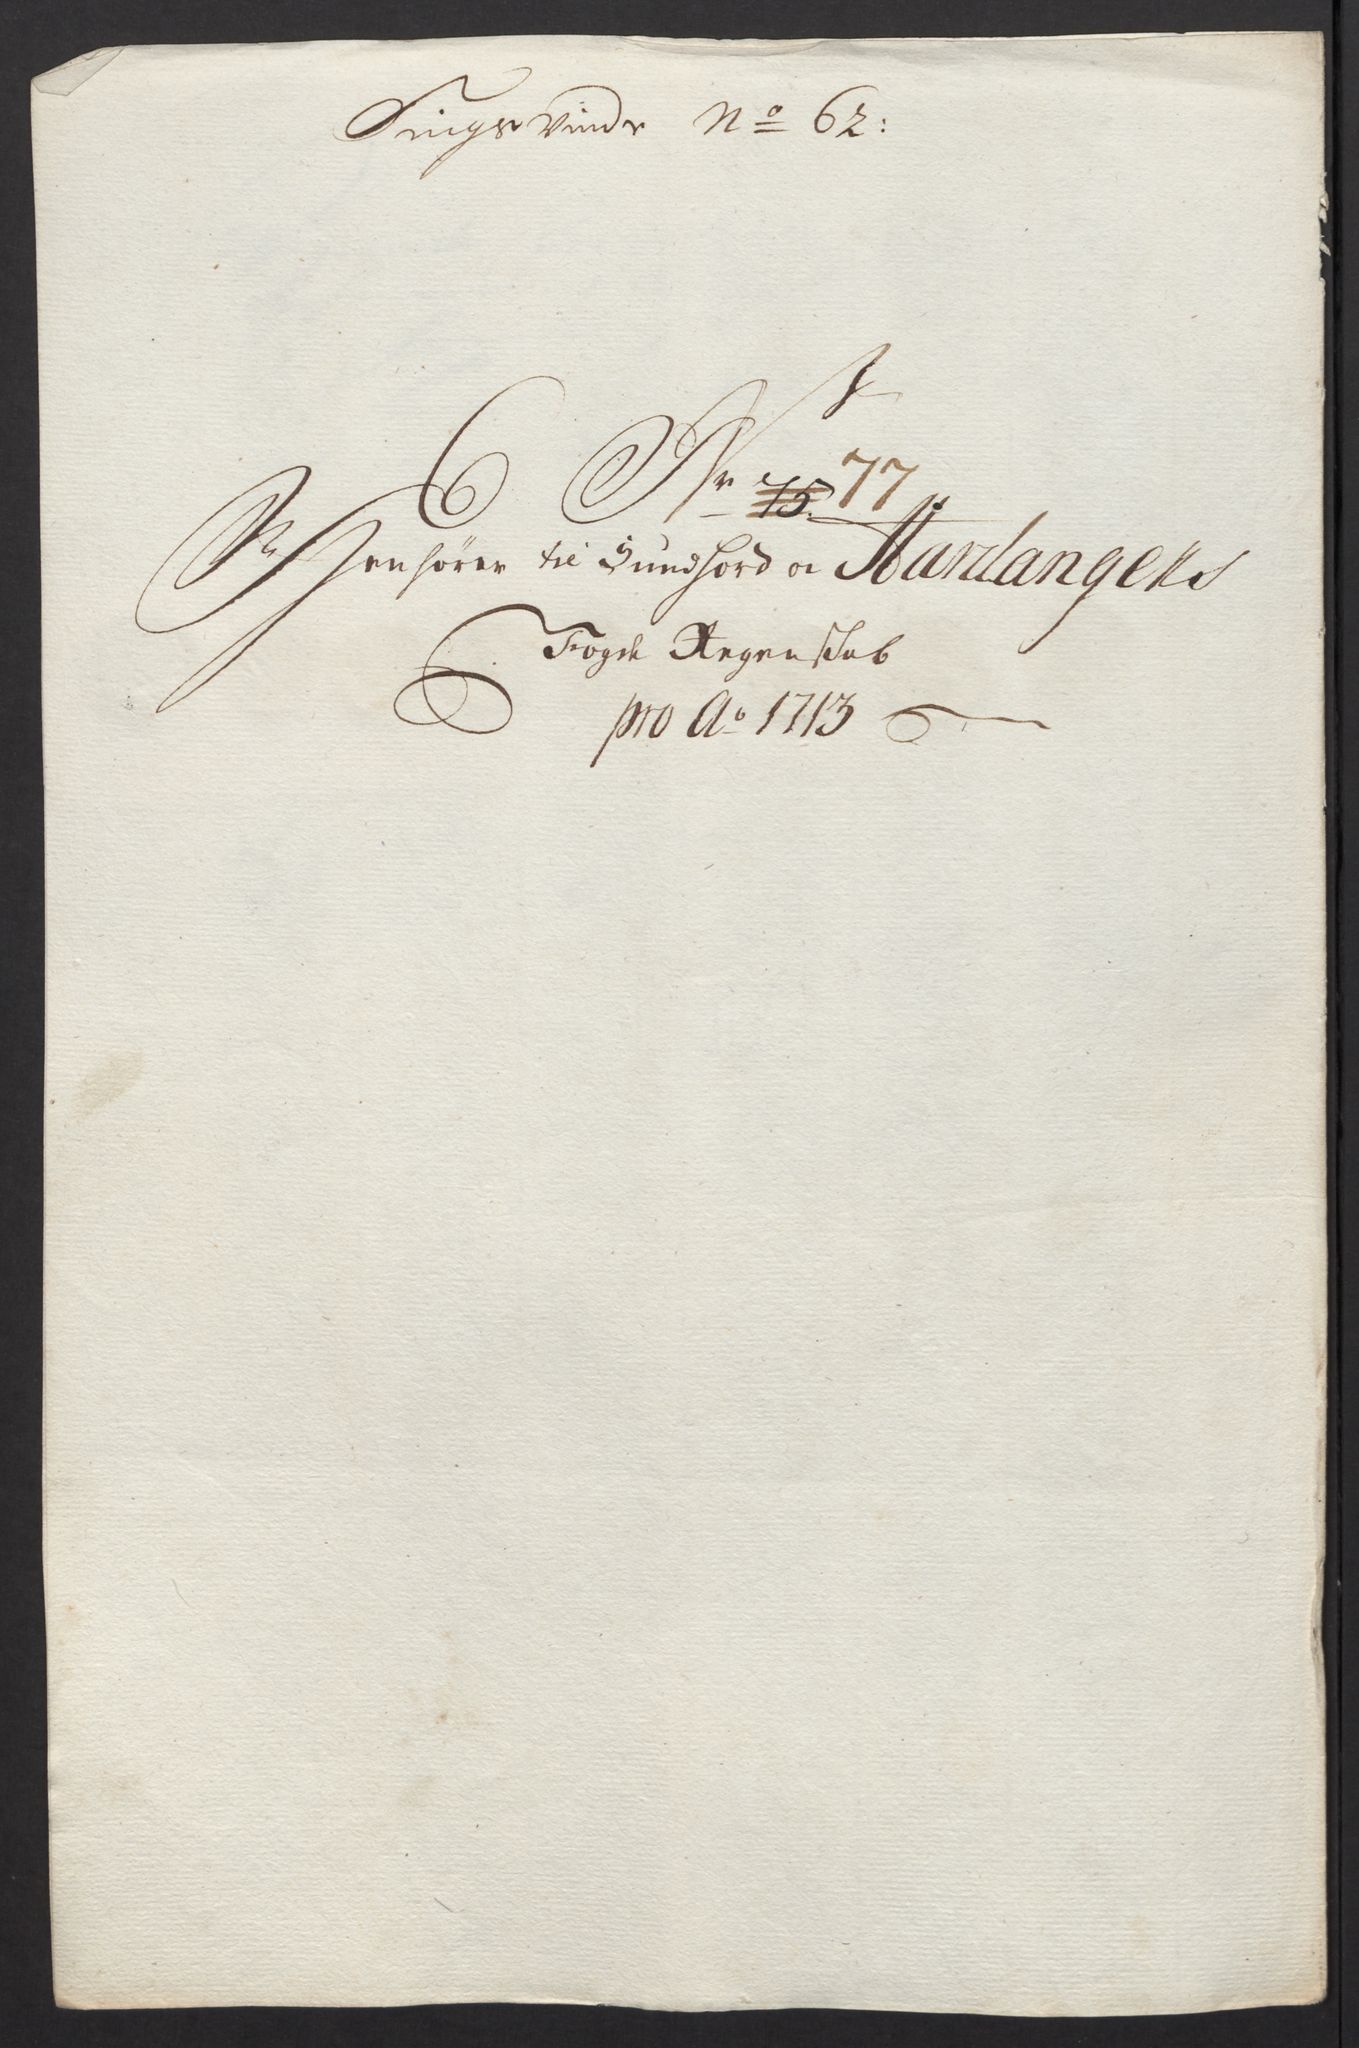 Tingsvinde No 62:
Nr 75. 77
Henhörer til Sundhord oc Hardangers
Fogde Regenskab
pro Ao 1713